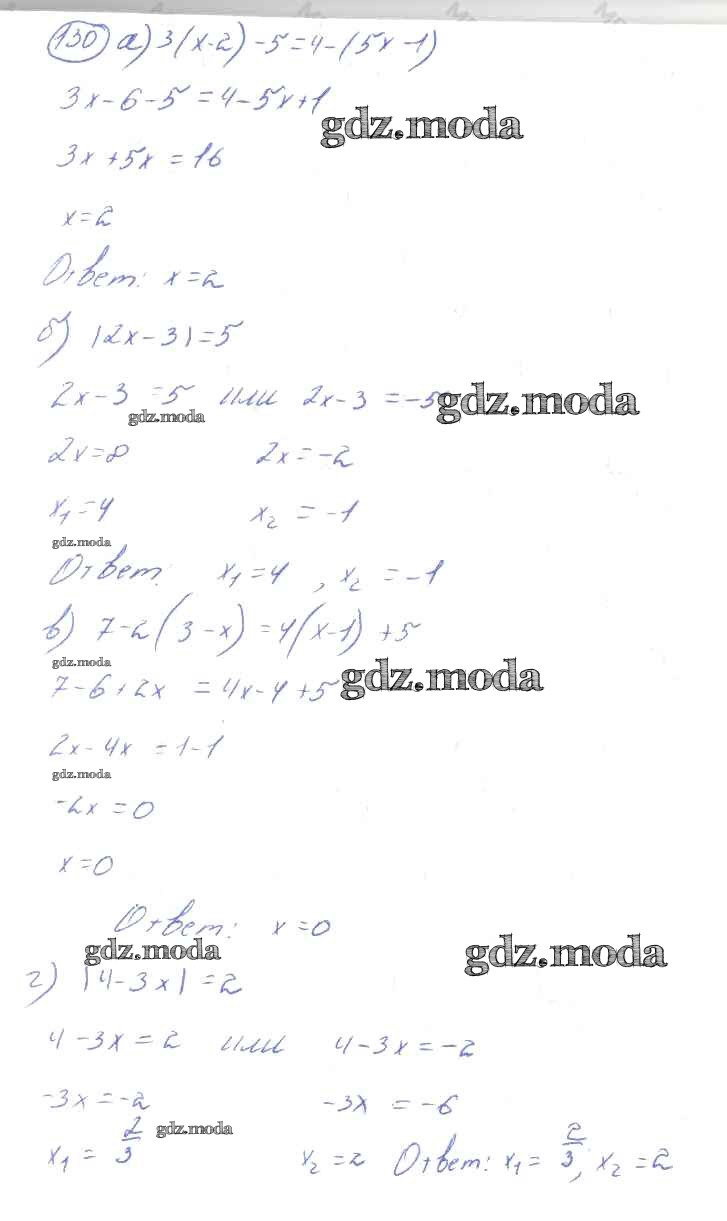 130 а) 3(x-2)-5=4-(5x-1)
3x-6-5=4-5x+1
gdz.moda
3x+5x=16
x=2
Ответ: x=2
б) |2x-3|=5
2x-3=5 или 2x-3=-5
gdz.moda
gdz.moda
2x=8 2x=-2
x₁=4 x₂=-1
gdz.moda
Ответ: x₁=4, x₂=-1
в) 7-2(3-x)=4(x-1)+5
gdz.moda
gdz.moda
7-6+2x=4x-4+5
2x-4x=1-1
gdz.moda
-2x=0
x=0
Ответ: x=0
gdz.moda
gdz.moda
г) |4-3x|=2
4-3x=2 или 4-3x=-2
-3x=-2 -3x=-6
gdz.moda
x₁=2/3 x₂=2 Ответ: x₁=2/3; x₂=2